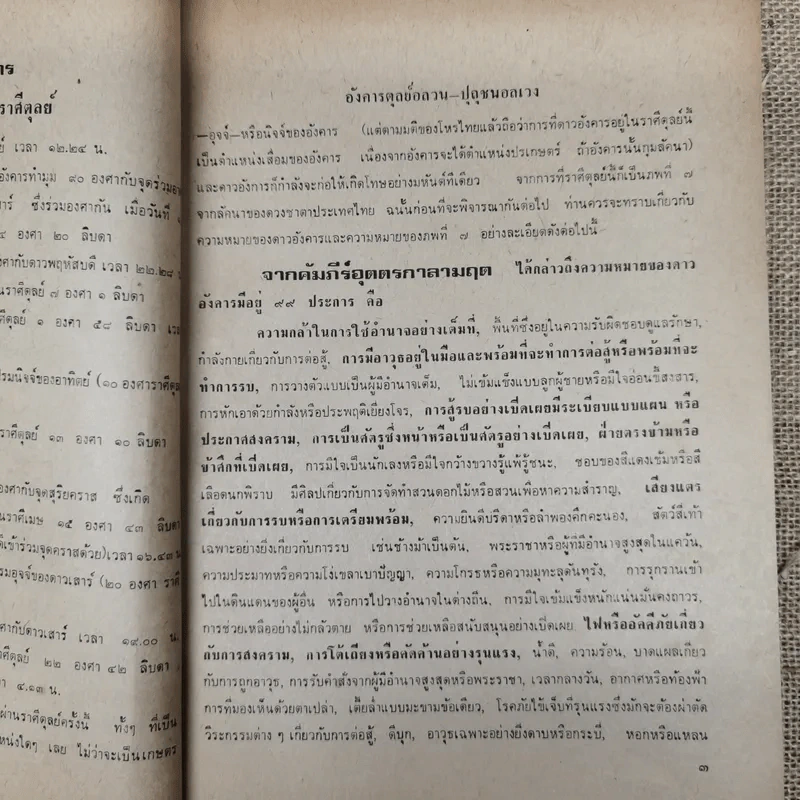 ราศีตุลย์
เวลา ๑๒.๒๔ น.
อังคารทำมุม ๙๐ องศากับจุดร่วมอ
ซึ่งร่วมองศากัน เมื่อวันที่
องศา ๒๐ ลิบดา
องศากับดาวพฤหัสบดี เวลา ๒๒.๒๘
นราศีตุลย์ ๗ องศา ๑ ลิบดา
ศีตุลย์ ๑ องศา ๕๘ ลิบดา เวล
รมนิจจ์ของอาทิตย์ (๑๐ องศาราศีตุล
ราศีตุลย์ ๑๓ องศา ๑๐ ลิบดา
องศากับจุดสุริยคราส ซึ่งเกิด
นราศีเมษ ๑๕ องศา ๔๓ ลิบดา
ข้าร่วมจุดคราสด้วย)เวลา ๑๖.๔๓ น
รมอุจจ์ของดาวเสาร์ (๒๐ องศา ราศี
ศากับดาวเสาร์ เวลา ๑๙.๐๐ น.
ศีตุลย์ ๒๒ องศา ๔๒ ลิบดา
๔.๑๓ น.
ผ่านราศีตุลย์ครั้งนี้ ทั้งๆ ที่เป็น
หน่งใดๆ เลย ไม่ว่าจะเป็นเกษตร
อังคารตุลย์อลวน—ปุถุชนอลเวง
—อุจจ์—หรือนิจจ์ของอังคาร (แต่ตามมติของโหรไทยแล้วถือว่าการที่ดาวอังคารอยู่ในราศีตุลย์นี้
เป็นตำแหน่งเสื่อมของอังคาร เนื่องจากอังคารจะได้ตำแหน่งประเกษตร์ ถ้าอังคารนั้นกุมลัคนา)
และดาวอังคารก็กำลังจะก่อให้เกิดโทษอย่างมหันต์ทีเดียว จากการที่ราศีตุลย์นี้ก็เป็นภพที่ ๗
จากลัคนาของดวงชาตาประเทศไทย ฉนั้นก่อนที่จะพิจารณากันต่อไป ท่านควรจะทราบเกี่ยวกับ
ความหมายของดาวอังคารและความหมายของภพที่ ๗ อย่างละเอียดดังต่อไปนี้
จากคัมภีร์อุตตรกาลามฤต ได้กล่าวถึงความหมายของดาว
อังคารมีอยู่ ๙๙ ประการ คือ
ความกล้าในการใช้อำนาจอย่างเต็มที่, พื้นที่ซึ่งอยู่ในความรับผิดชอบดูแลรักษา,
กำลังกายเกี่ยวกับการต่อสู้, การมีอาวุธอยู่ในมือและพร้อมที่จะทำการต่อสู้หรือพร้อมที่จะ
ทำการรบ, การวางตัวแบบเป็นผู้มีอำนาจเต็ม, ไม่เข้มแข็งแบบลูกผู้ชายหรือมีใจอ่อนขี้สงสาร,
การหักเอาด้วยกำลังหรือประพฤติเยี่ยงโจร, การสู้รบอย่างเปิดเผยมีระเบียบแบบแผน หรือ
ประกาศสงคราม, การเป็นศัตรูซึ่งหน้าหรือเป็นศัตรูอย่างเปิดเผย, ฝ่ายตรงข้ามหรือ
ข้าศึกที่เปิดเผย, การมีใจเป็นนักเลงหรือมีใจกว้างขวางรู้แพ้รู้ชนะ, ชอบของสีแดงเข้มหรือสี
เลือดนกพิราบ มีศิลปเกี่ยวกับการจัดทำสวนดอกไม้หรือสวนเพื่อหาความสำราญ, เสียงแตร
เกี่ยวกับการรบหรือการเตรียมพร้อม, ความยินดีปรีดาหรือลำพองคึกคะนอง, สัตว์สี่เท้า
เฉพาะอย่างยิ่งเกี่ยวกับการรบ เช่นช้างม้าเป็นต้น, พระราชาหรือผู้ที่มีอำนาจสูงสุดในแคว้น,
ความประมาทหรือความโง่เขลาเบาปัญญา, ความโกรธหรือความมุทะลุดันทุรัง, การรุกรานเข้า
ไปในดินแดนของผู้อื่น หรือการไปวางอำนาจในต่างถิ่น, การมีใจเข้มแข็งหนักแน่นมั่นคงถาวร,
การช่วยเหลืออย่างไม่กลัวตาย หรือการช่วยเหลือสนับสนุนอย่างเปิดเผย, ไฟหรืออัคคีภัยเกี่ยว
กับการสงคราม, การโต้เถียงหรือคัดค้านอย่างรุนแรง, น้ำดี, ความร้อน, บาดแผลเกี่ยว
กับการถูกอาวุธ, การรับคำสั่งจากผู้มีอำนาจสูงสุดหรือพระราชา, เวลากลางวัน, อากาศหรือท้องฟ้า
การที่มองเห็นด้วยตาเปล่า, เตี้ยล่ำแบบมะขามข้อเดียว, โรคภัยไข้เจ็บที่รุนแรงซึ่งมักจะต้องผ่าตัด
วีระกรรมต่าง ๆ เกี่ยวกับการต่อสู้, ดีบุก, อาวุธเฉพาะอย่างยิ่งดาบหรือกระบี่, หอกหรือแหลน
๓